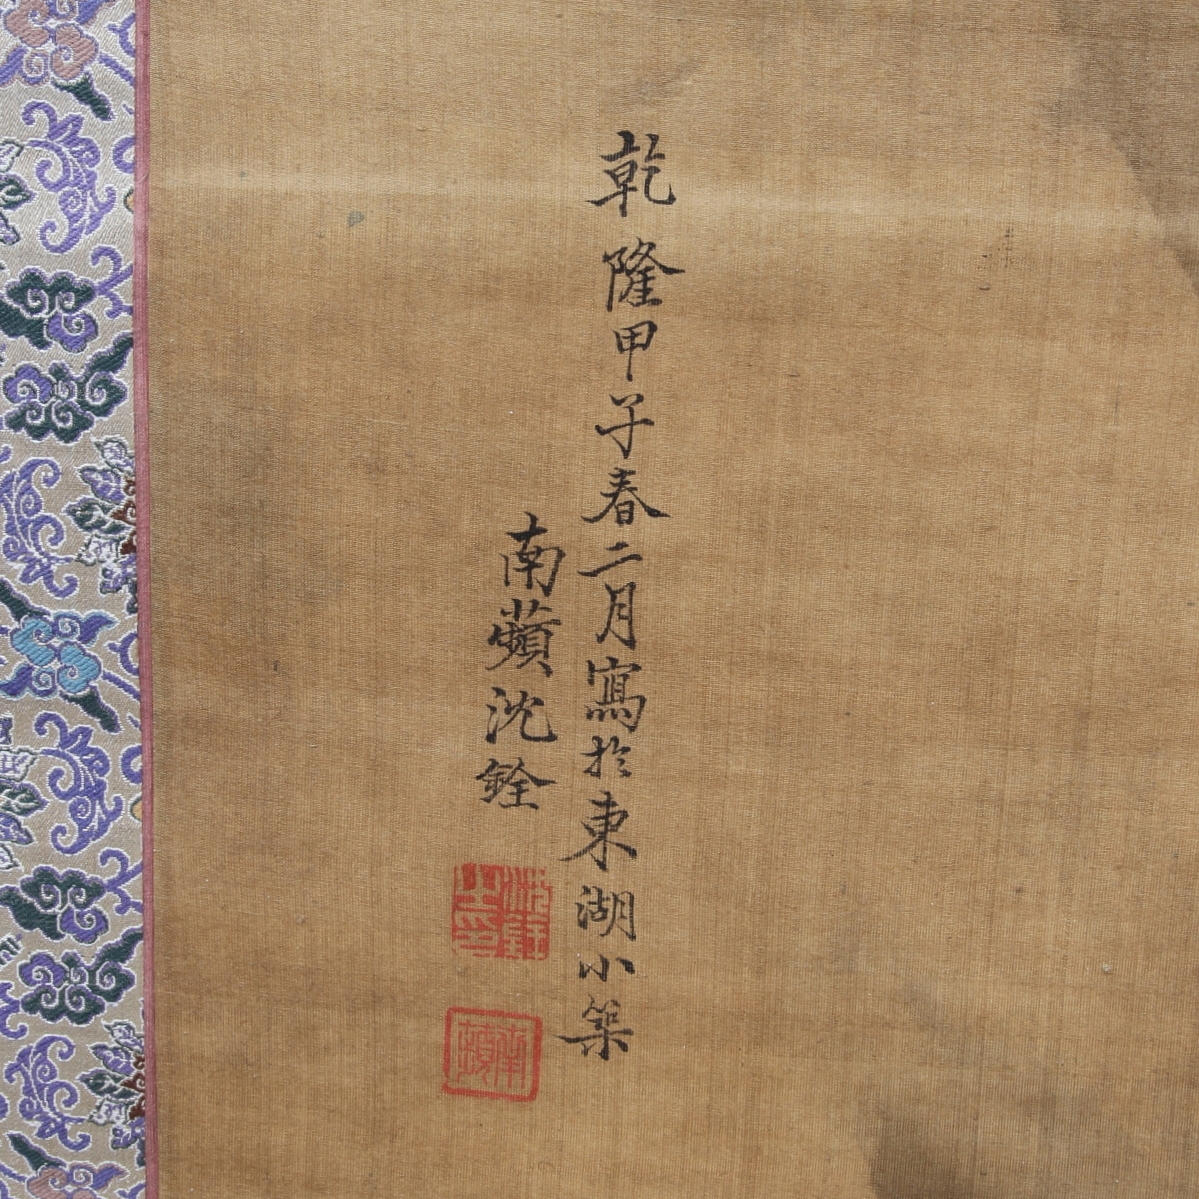 乾隆甲子春二月寫於東湖小築
南蘋沈銓
沈銓之印
南蘋